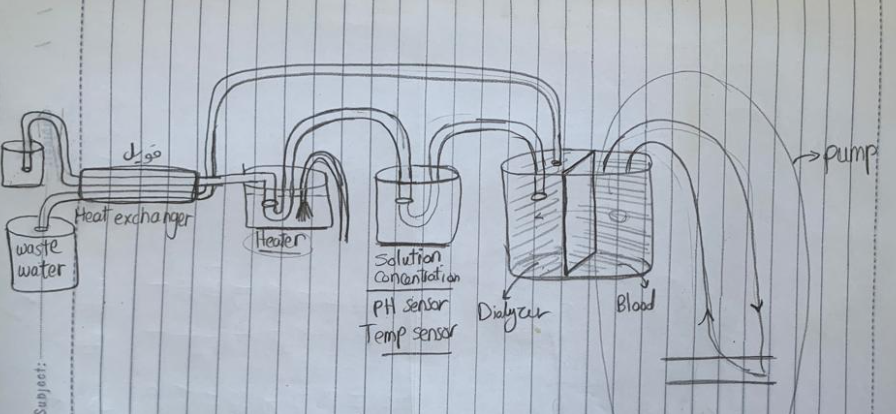 فويل
Heat exchanger
waste
water
Heater
Solution
Concentration
PH sensor
Temp sensor
Dialyzer
Blood
pump
Subject: